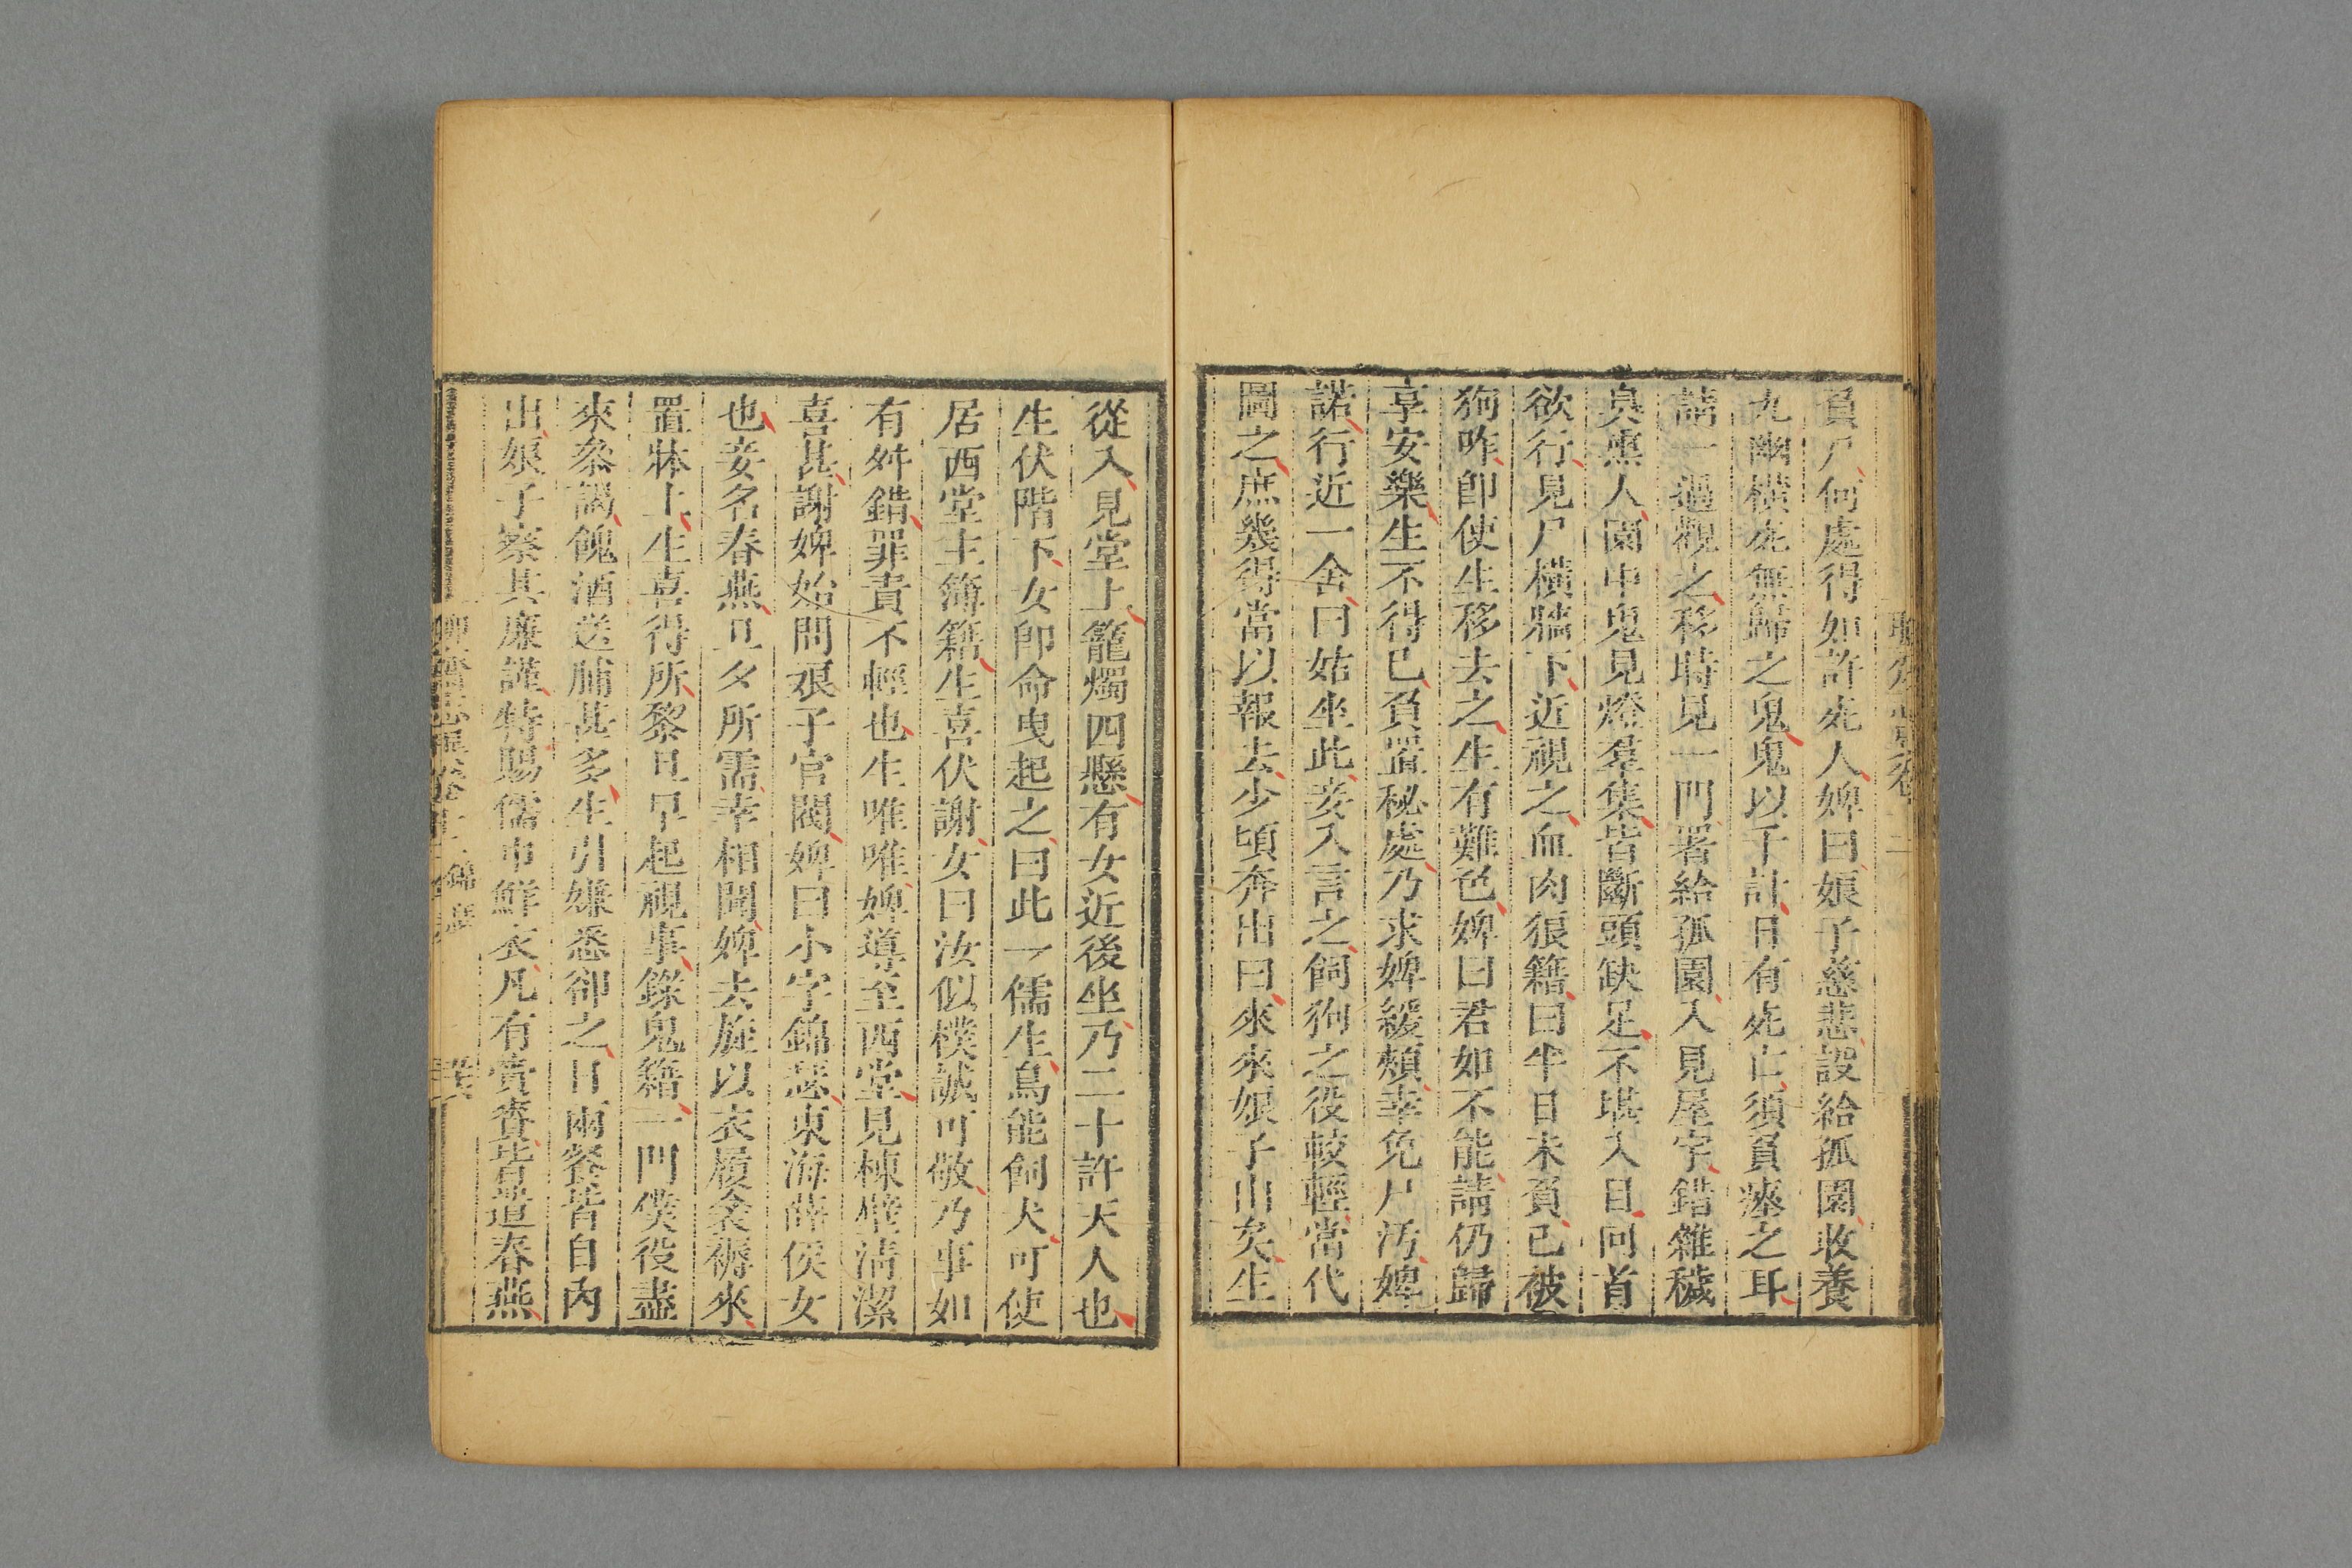 負尸何處得如許死人婢曰娘子慈悲設給孤園收養
九幽橫死無歸之鬼鬼以千計日有死亡須負瘞之耳
請一過觀之移時見一門署給孤園入見屋宇錯雜穢
臭熏人園中鬼見燈羣集皆斷頭缺足不堪入目囘首
欲行見尸橫牆下近視之血肉狼籍曰半日未負已被
狗咋卽使生移去之生有難色婢曰君如不能請仍歸
享安樂生不得已負置秘處乃求婢緩頰幸免尸汚婢
諾行近一舍曰姑坐此妾入言之飼狗之役較輕當代
圖之庶幾得當以報去少頃奔出曰來來娘子出矣生
從入見堂上籠燭四懸有女近後坐乃二十許天人也
生伏階下女卽命曳起之曰此一儒生烏能飼犬可使
居西堂主簿籍生喜伏謝女曰汝似樸誠可敬乃事如
有舛錯罪責不輕也生唯唯婢導至西堂見棟壁清潔
喜甚謝婢始問娘子官閥婢曰小字錦瑟東海薛侯女
也妾名春燕旦夕所需幸相聞婢去旋以衣履衾褥來
置牀上生喜得所黎旦早起視事錄鬼籍一門僕役盡
來叅謁餽酒送脯甚多生引嫌悉卻之日兩餐皆自內
出娘子察其廉謹特賜儒巾鮮衣凡有賚賫皆遣春燕